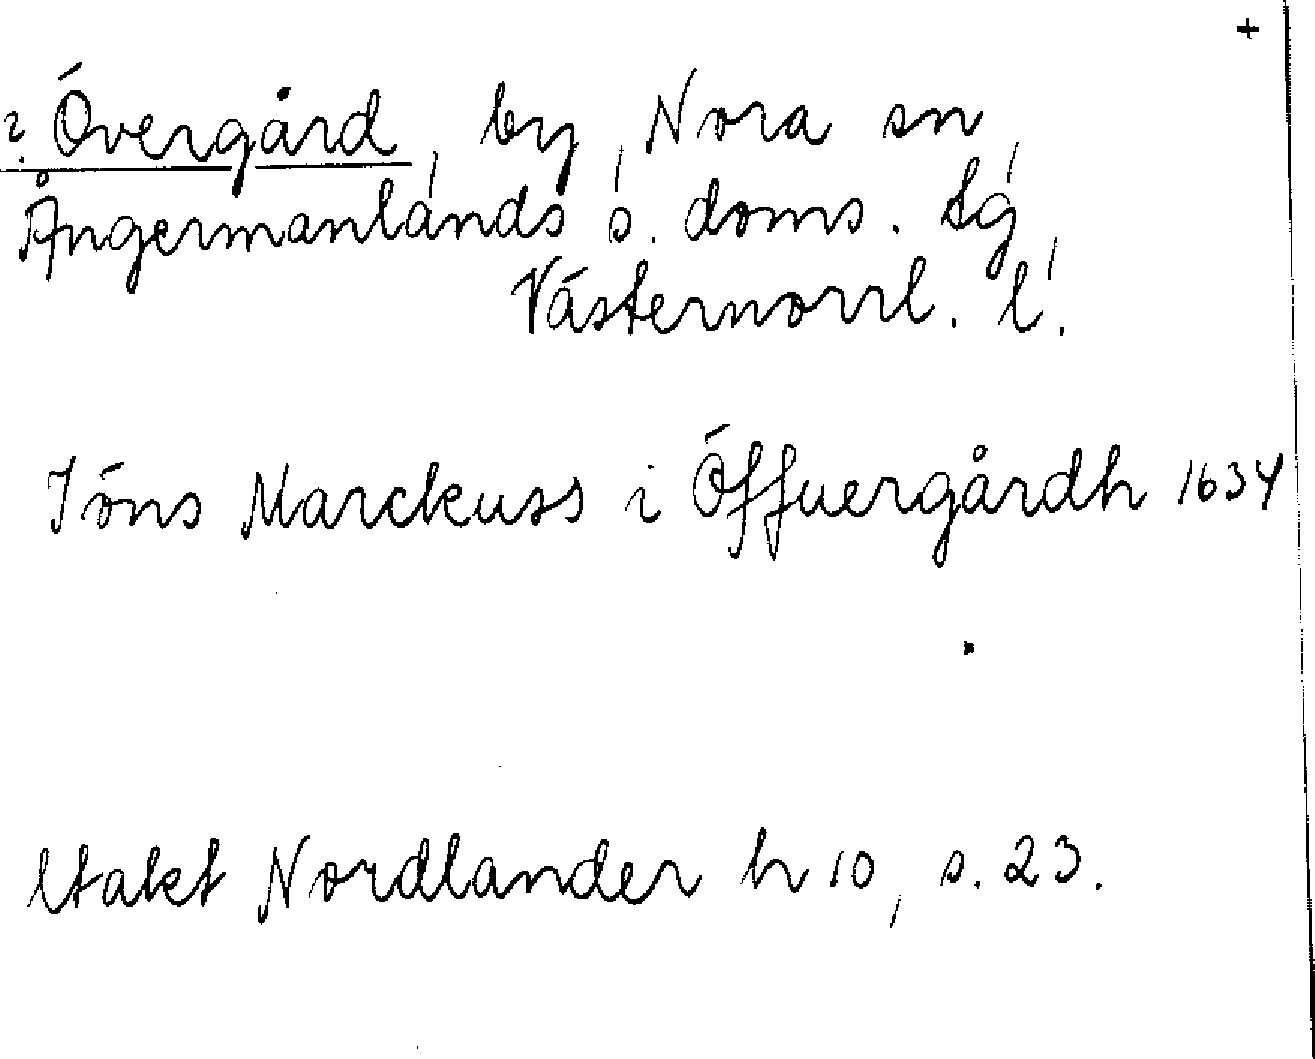 +
? Övergård, by, Nora sn,
Ångermanlands s. doms. tg,
Västernorrl. l.
Jöns Marckuss i Öffuergårdh 1634
Utakt Nordlander h 10, s. 23.